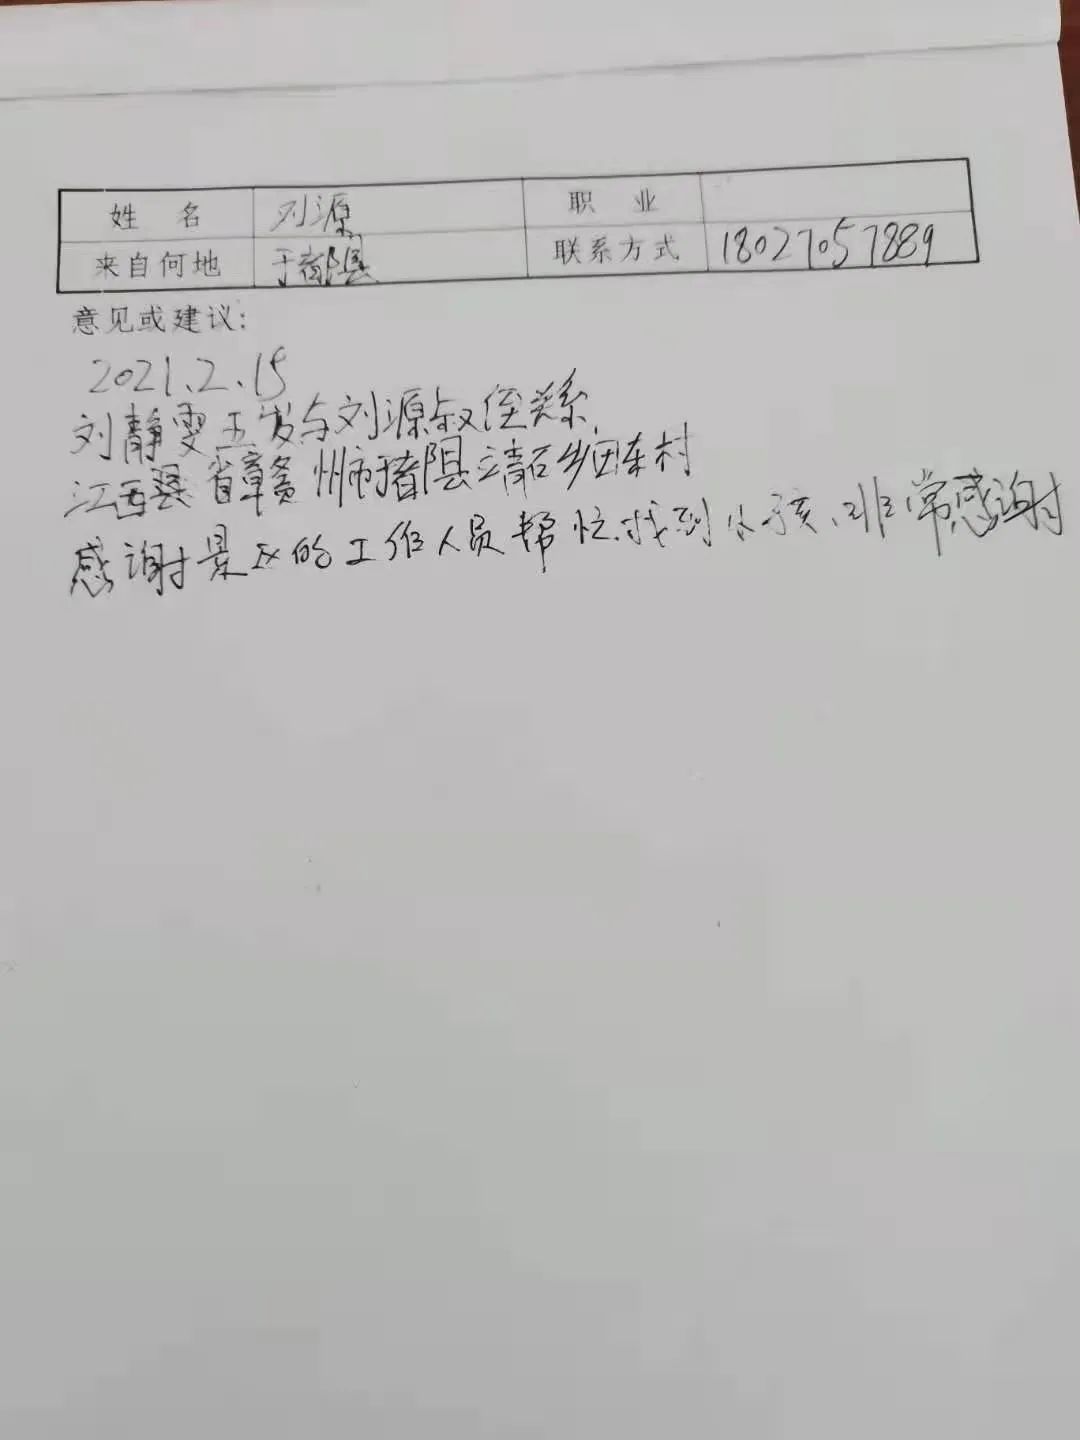 姓 名 刘源 职 业
来自何地 于都县 联系方式 18027057889
意见或建议:
2021.2.15
刘静雯 与刘源叔侄关系,
江西 省 赣州市于都县 石乡 村
感谢景区的工作人员帮忙找到小孩、非常感谢